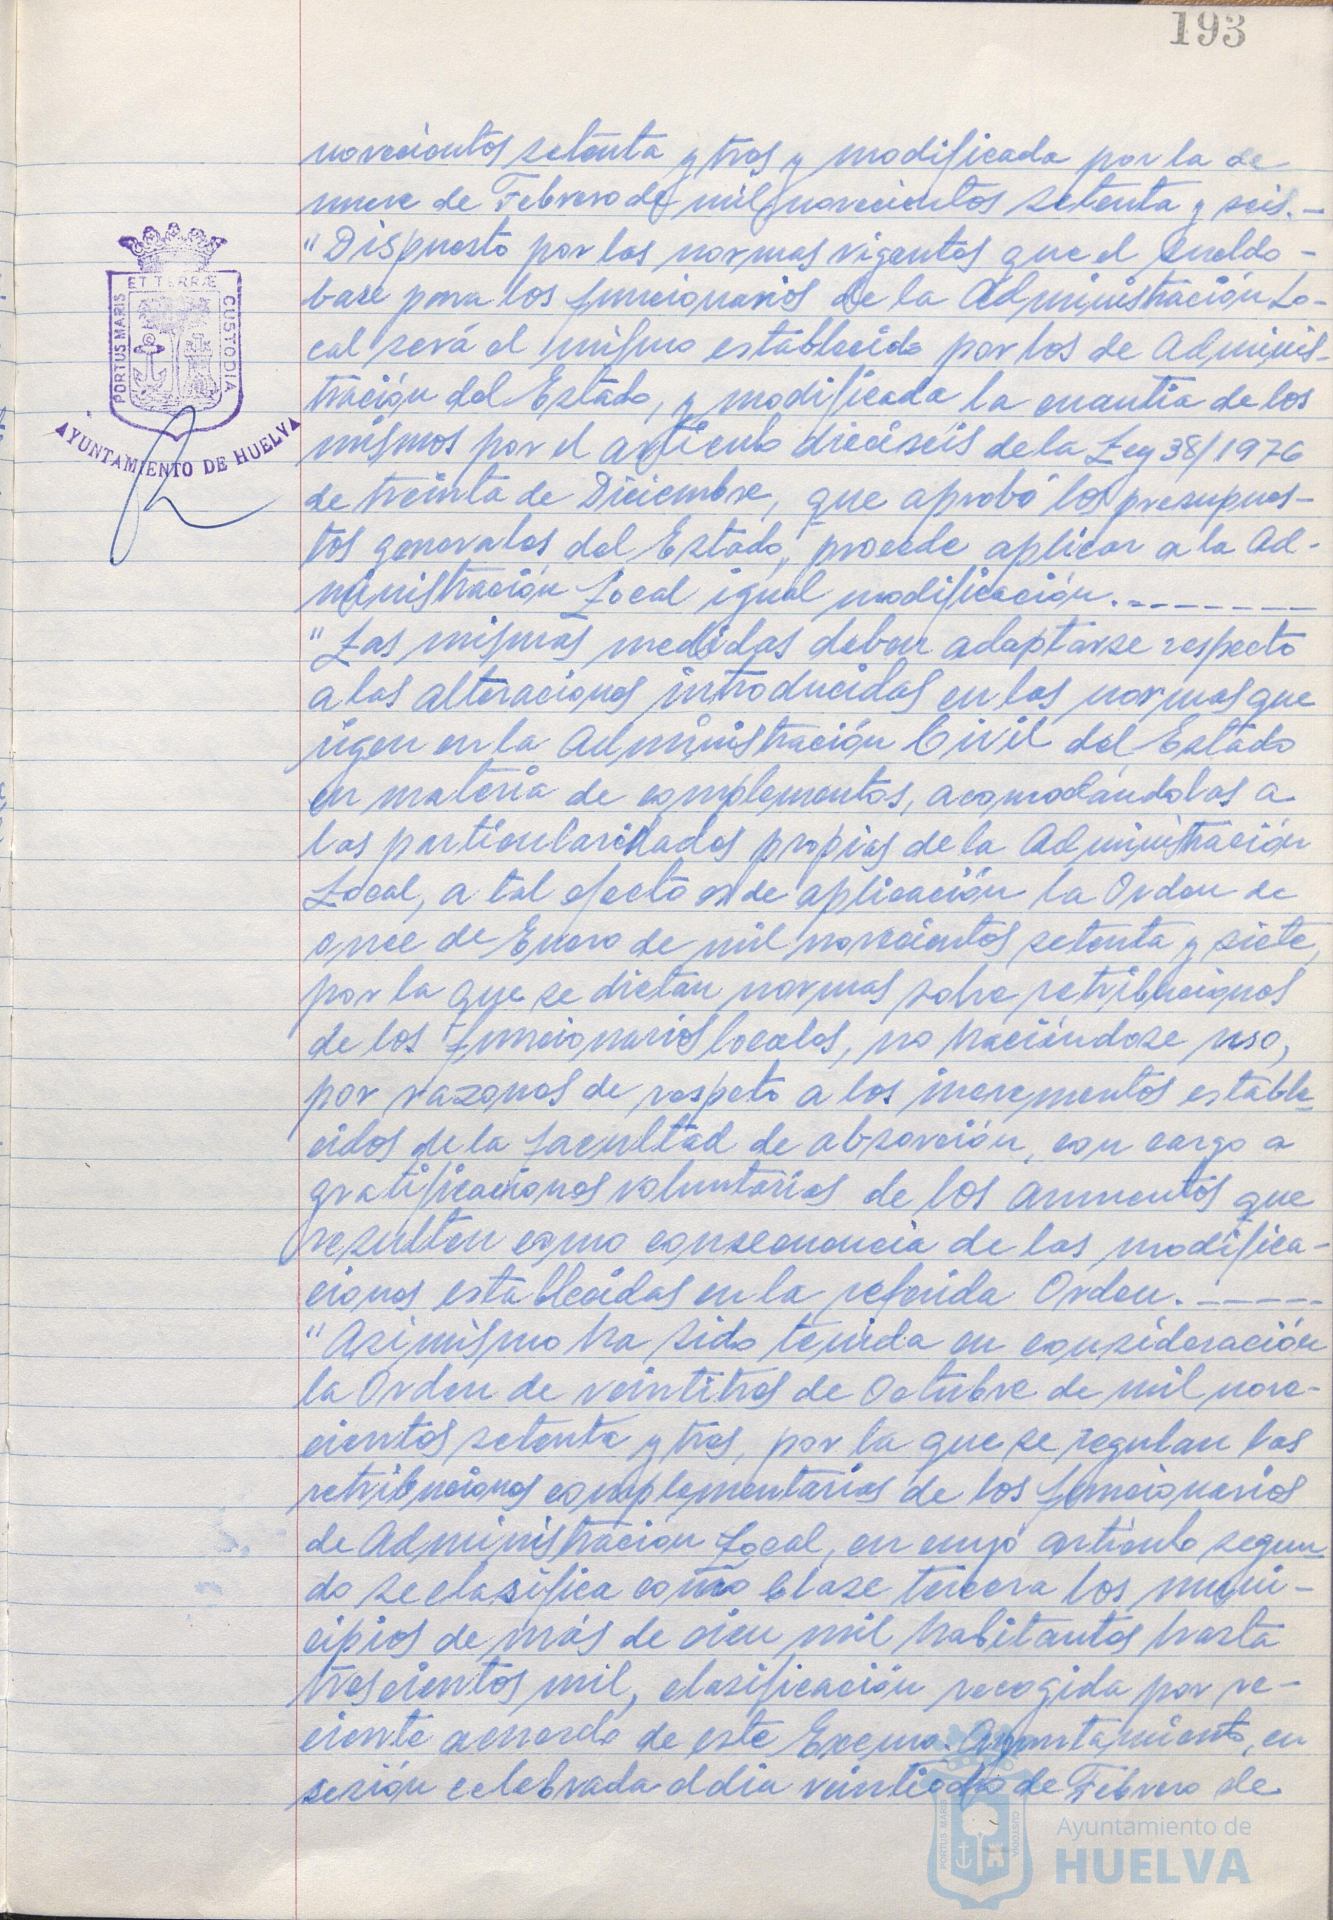 193
novecientos setenta y tres y modificada por la de
nueve de Febrero de mil novecientos setenta y seis.-
"Dispuesto por las normas vigentes que el sueldo-
base para los funcionarios de la Administración Lo-
cal será el mismo establecido por los de Adminis-
tración del Estado, y modificada la cuantia de los
mismos por el artículo dieciseis de la Ley 38/1976
de treinta de Diciembre, que aprobó los presupues-
tos generales del Estado, procede aplicar a la Ad-
ministración Local igual modificación.--------
"Las mismas medidas deben adaptarse respecto
a las alteraciones introducidas en las normas que
rigen en la Administración Civil del Estado
en materia de complementos, acomodándolas a
las particularidades propias de la Administración
Local, a tal efecto es de aplicación la Orden de
once de Enero de mil novecientos setenta y siete,
por la que se dictan normas sobre retribuciones
de los funcionarios locales, no haciéndose uso,
por razones de respeto a los incrementos estable-
cidos de la facultad de absorción, con cargo a
gratificaciones voluntarias de los aumentos que
resulten como consecuencia de las modifica-
ciones establecidas en la referida Orden.------
"Asimismo ha sido tenida en consideración
la Orden de veintitres de Octubre de mil nove-
cientos setenta y tres, por la que se regulan las
retribuciones complementarias de los funcionarios
de Administración Local, en cuyo artículo segun-
do se clasifica como clase tercera los muni-
cipios de más de cien mil habitantes hasta
trescientos mil, clasificación recogida por re-
ciente acuerdo de este Excmo. Ayuntamiento, en
sesión celebrada el dia de Febrero de
PORTUS MARIS ET TERRÆ CUSTODIA
AYUNTAMIENTO DE HUELVA
PORTUS MARIS CUSTODIA
Ayuntamiento de
HUELVA